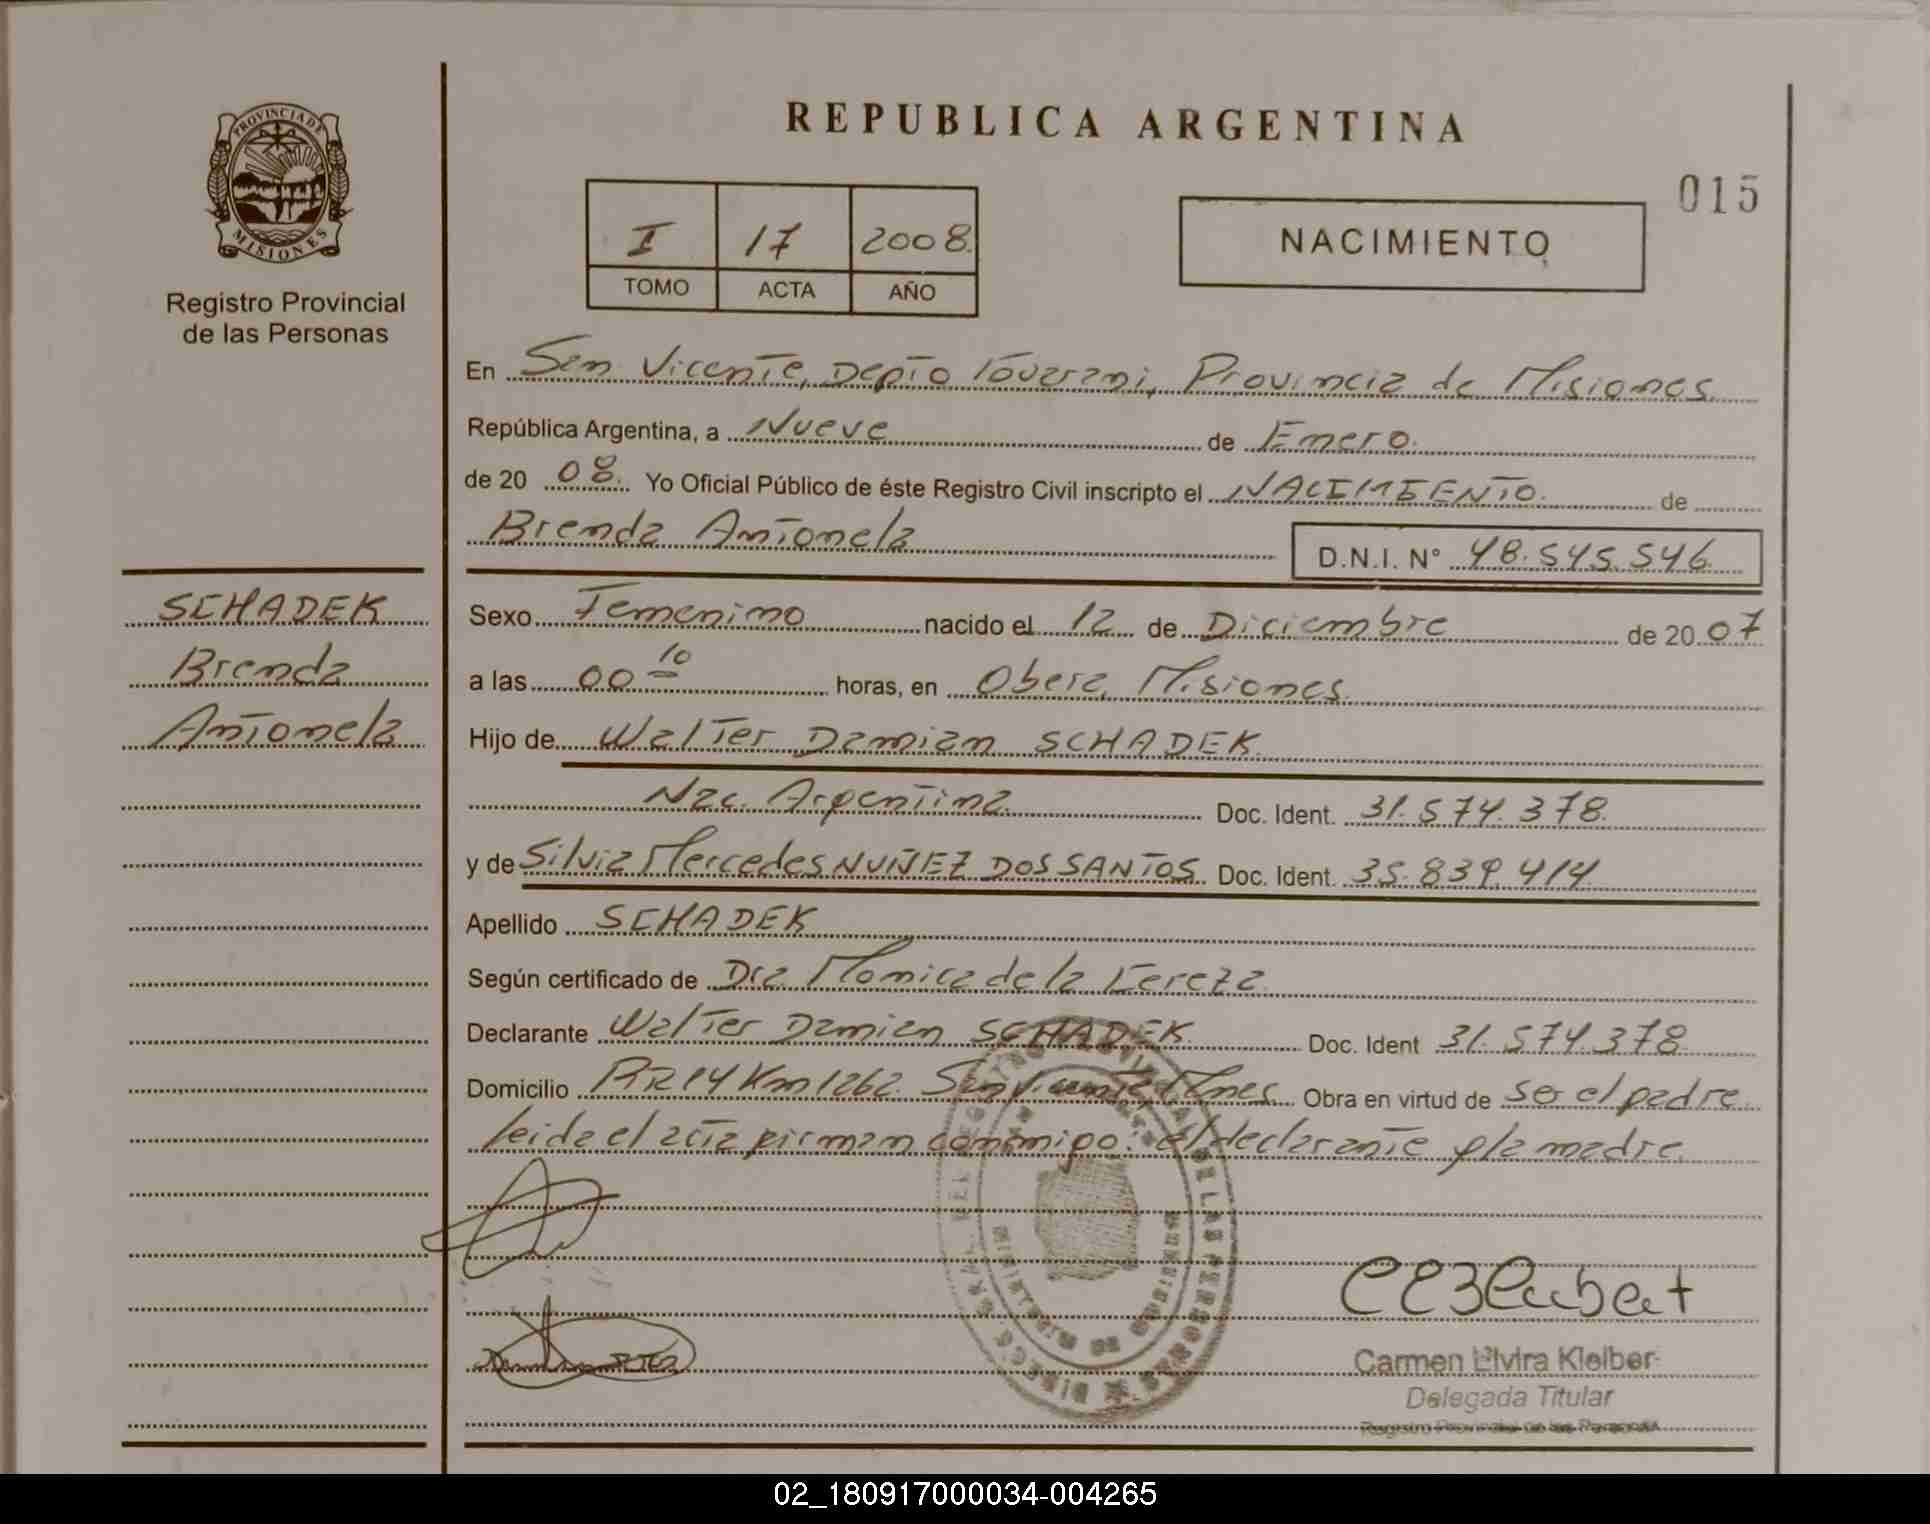 REPUBLICA ARGENTINA
015
PROVINCIA DE
MISIONES
Registro Provincial
de las Personas
I 17 2008
TOMO ACTA AÑO
NACIMIENTO
En San Vicente, Depto Guarani, Provincia de Misiones
República Argentina, a Nueve de Enero.
de 20 08. Yo Oficial Público de éste Registro Civil inscripto el NACIMIENTO. de
Brenda Antonela
D.N.I. N° 48.545.546
SCHADEK
Brenda
Antonela
Sexo Femenino nacido el 12 de Diciembre de 20 07
a las 00 10 horas, en Obera, Misiones.
Hijo de Walter Damian SCHADEK
Nac. Argentina Doc. Ident. 31.574.378.
y de Silvia Mercedes NUÑEZ DOS SANTOS Doc. Ident. 35.839.414
Apellido SCHADEK
Según certificado de Dra. Monica de la
Declarante Walter Damian SCHADEK Doc. Ident 31.574.378
Domicilio Km 1262 San Vicente, Mnes. Obra en virtud de ser el padre
leida el acta firman conmigo: el declarante y la madre.
Carmen Elvira Kleiber
Delegada Titular
Registro Provincial de las Personas
02_180917000034-004265